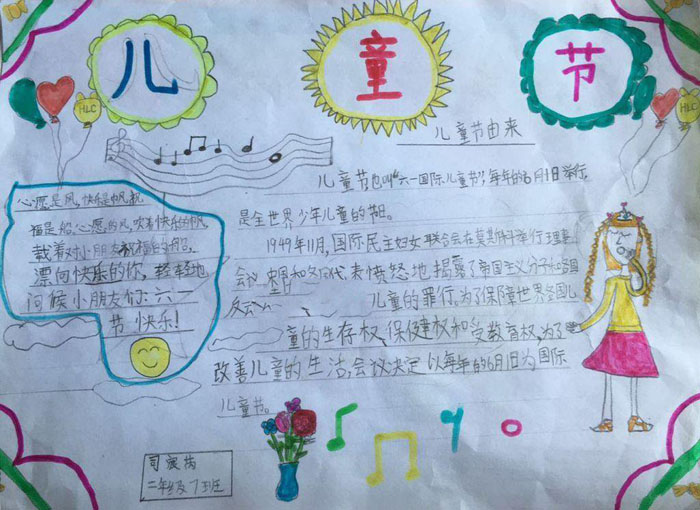 儿 童 节
HLC
儿童节由来
儿童节也叫"六一国际儿童节",每年的6月1日举行,
是全世界少年儿童的节日。
1949年11月,国际民主妇女联合会在莫斯科举行理事
会议 中国和各国代表愤怒地揭露了帝国主义分子和各国
反动
儿童的罪行。为了保障世界各国儿
童的生存权、保健权和受教育权,为了
改善儿童的生活,会议决定以每年的6月1日为国际
儿童节。
心愿是风,快乐是帆,祝
福是船。心愿的风,吹着快乐的帆,
载着对小朋友祝福的船,
漂向快乐的你,轻轻地
问候小朋友们:六一
节快乐!
二年级 7班